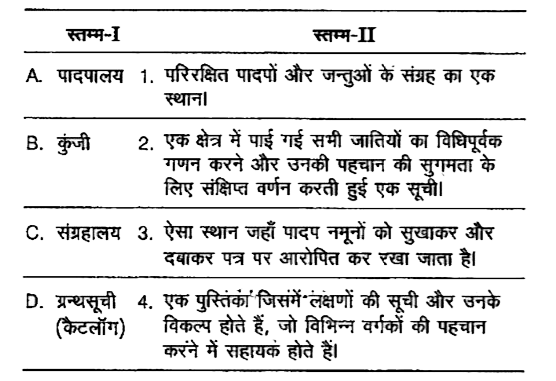 स्तम्भ-I स्तम्भ-II
A. पादपालय 1. परिरक्षित पादपों और जन्तुओं के संग्रह का एक
स्थान।
B. कुंजी 2. एक क्षेत्र में पाई गई सभी जातियों का विधिपूर्वक
गणन करने और उनकी पहचान की सुगमता के
लिए संक्षिप्त वर्णन करती हुई एक सूची।
C. संग्रहालय 3. ऐसा स्थान जहाँ पादप नमूनों को सुखाकर और
दबाकर पत्र पर आरोपित कर रखा जाता है।
D. ग्रन्थसूची 4. एक पुस्तिका जिसमें लक्षणों की सूची और उनके
(कैटलॉग) विकल्प होते हैं, जो विभिन्न वर्गकों की पहचान
करने में सहायक होते हैं।